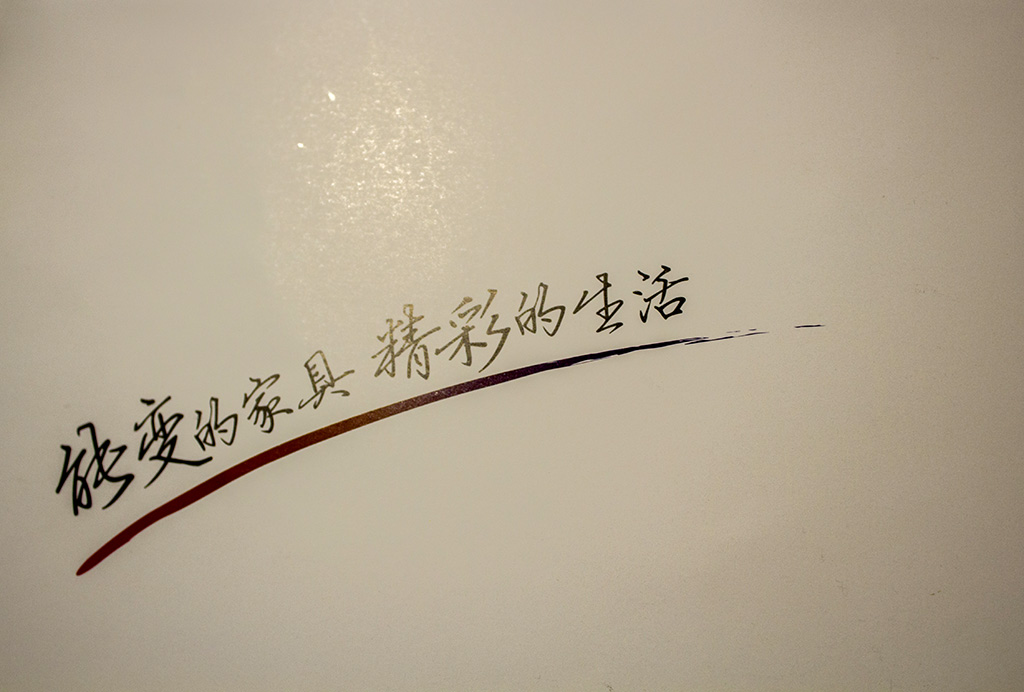 能变的家具 精彩的生活